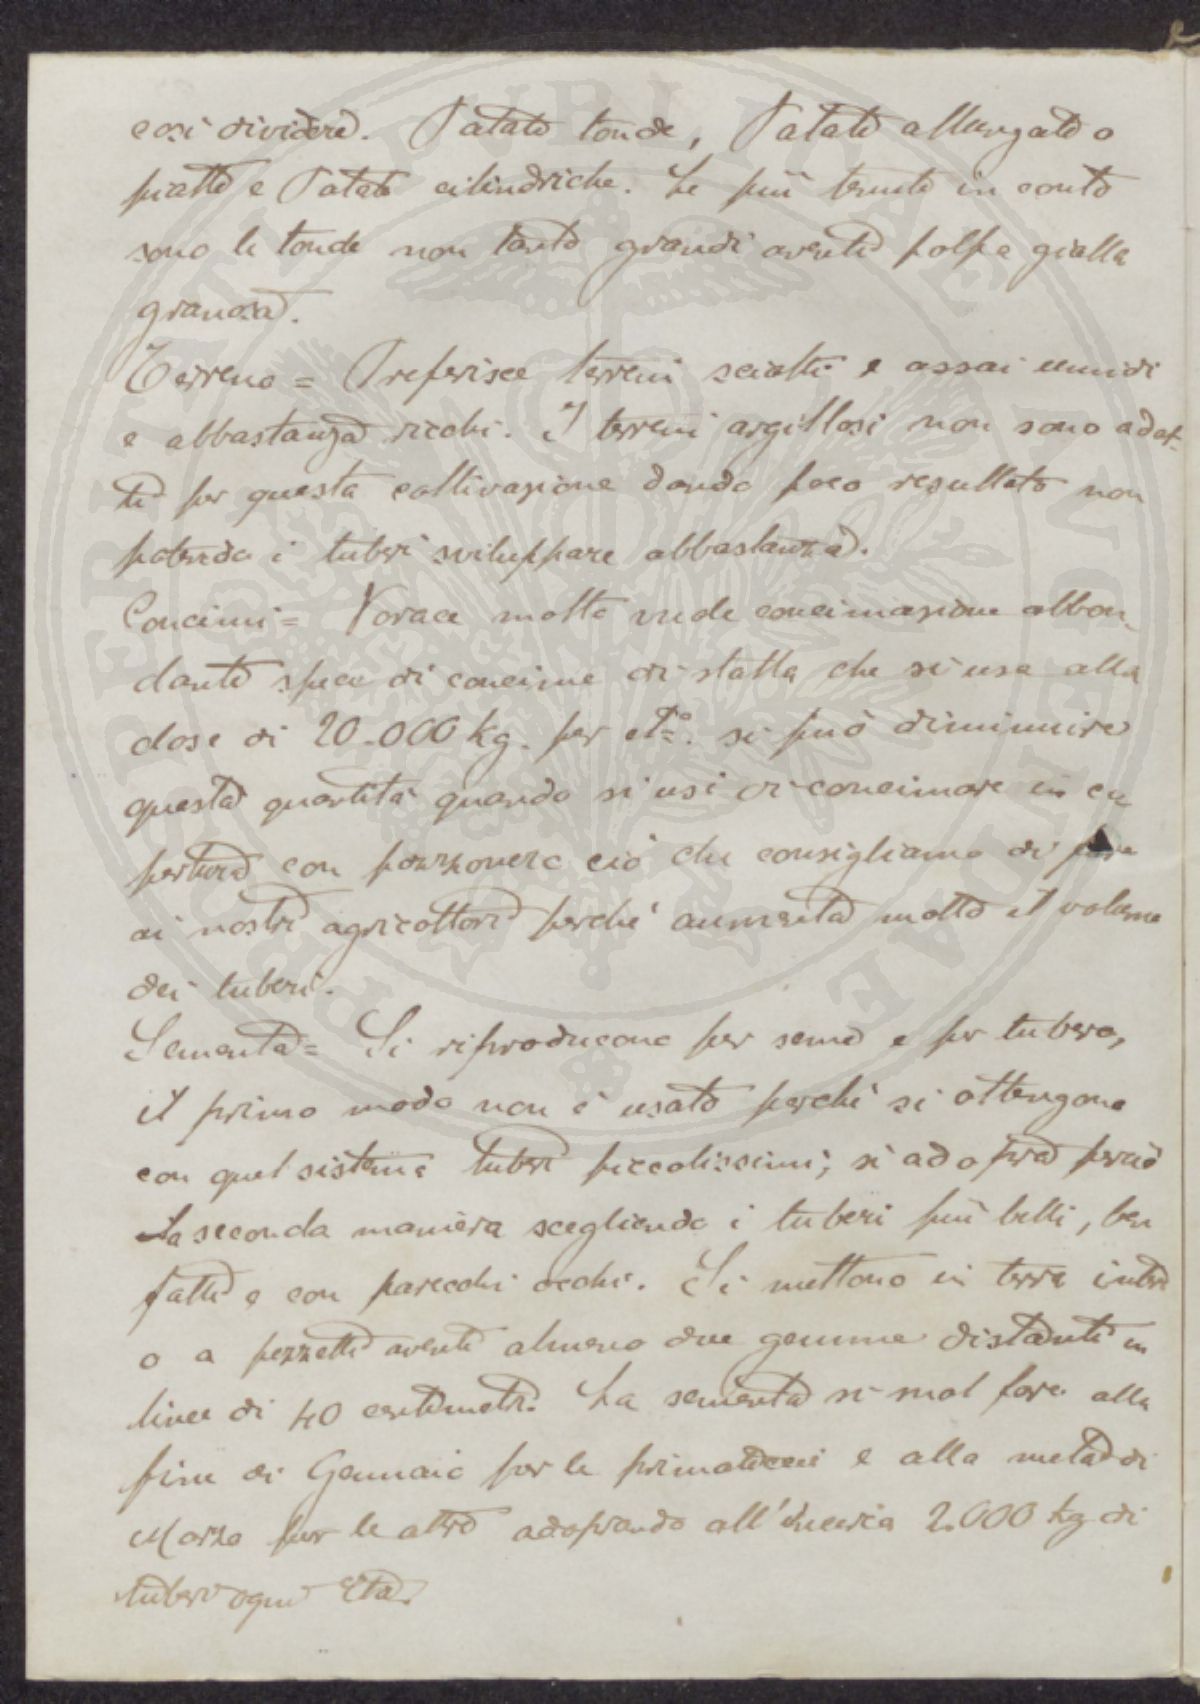 così dividere. Patate tonde, Patate allungate o
piatte e Patate cilindriche. Le più tenute in conto
sono le tonde non tanto grandi aventi polpa gialla
granosa.
Terreno = Preferisce terreni sciolti e assai umidi
e abbastanza ricchi. I terreni argillosi non sono adat-
ti per questa coltivazione dando poco resultato non
potendo i tuberi sviluppare abbastanza.
Concimi = Vorace molto vuole concimazione abbon-
dante specie di concime di stalla che si usa alla
dose di 20.000 kg. per et.º. si può diminuire
questa quantità quando si usi di concimare in co
pertura con pozzonero ciò che consigliamo di fare
ai nostri agricoltori perché aumenta molto il volume
dei tuberi.
Sementa = Si riproducono per seme e per tubero,
il primo modo non è usato perché si ottengono
con quel sistema tuberi piccolissimi; si adopra perciò
la seconda maniera scegliendo i tuberi più belli, ben
fatti e con parecchi occhi. Si mettono in terra interi
o a pezzetti aventi almeno due gemme distanti in
linee di 40 centimetri. La sementa si suol fare alla
fine di Gennaio per le primaticcie e alla metà di
Marzo per le altre adoprando all'incirca 2.000 kg di
tuberi ogni Etta.
PVBLICAE EVNDAE PROSPERITATI